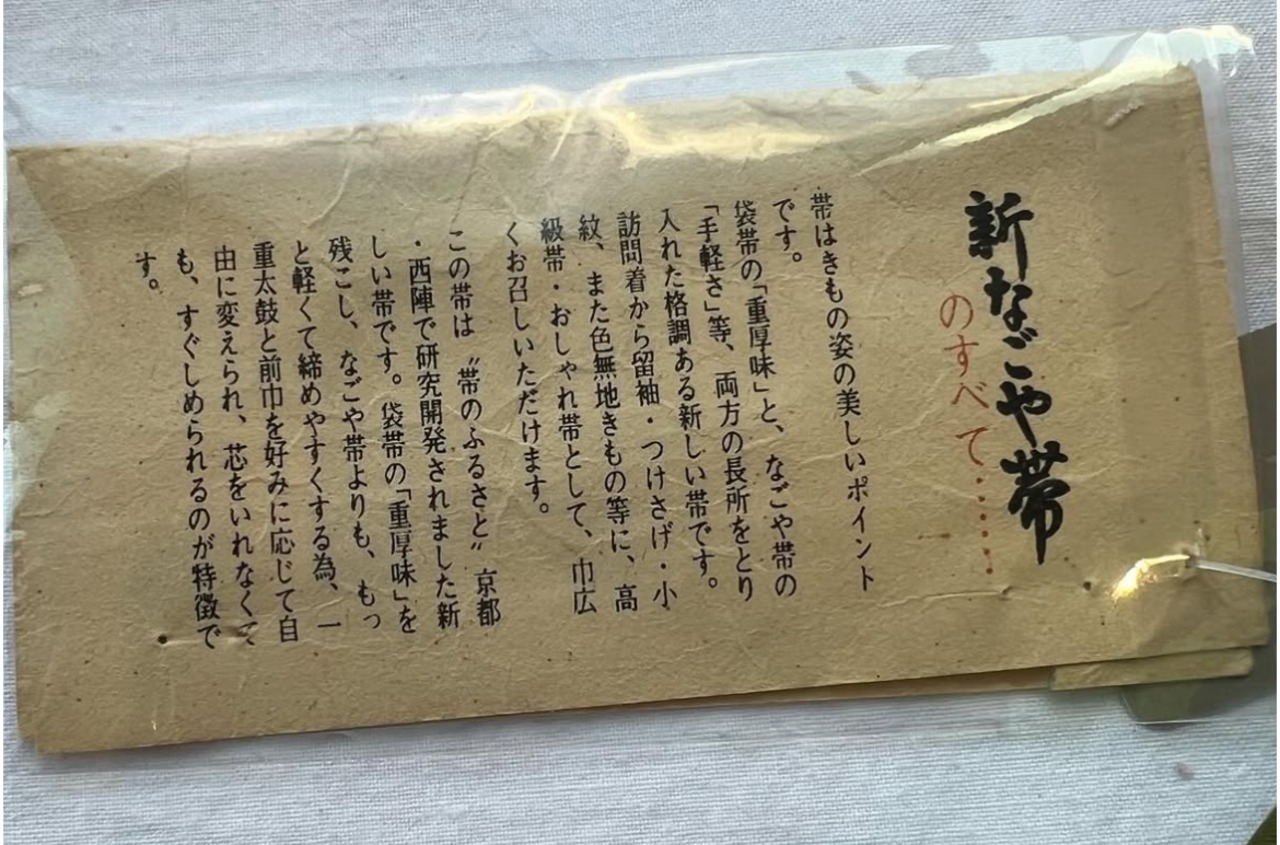 新なごや帯
のすべて……
帯はきもの姿の美しいポイント
です。
袋帯の「重厚味」と、なごや帯の
「手軽さ」等、両方の長所をとり
入れた格調ある新しい帯です。
訪問着から留袖・つけさげ・小
紋、また色無地きもの等に、高
級帯・おしゃれ帯として、巾広
くお召しいただけます。
この帯は〝帯のふるさと〟京都
・西陣で研究開発されました新
しい帯です。袋帯の「重厚味」を
残こし、なごや帯よりも、もっ
と軽くて締めやすくする為、一
重太鼓と前巾を好みに応じて自
由に変えられ、芯をいれなくて
も、すぐしめられるのが特徴で
す。